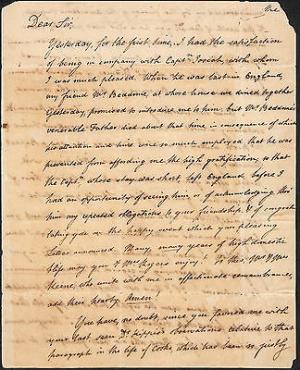 Dear Sir,
Yesterday, for the first time, I had the satisfaction
of being in company with Capt. Josiah, with whom
I was much pleased. When he was last in England,
my friend Mr Beadome, at whose house we dined together
Yesterday, promised to introduce me to him, but Mr Beadome's
venerable Father died about that time in consequence of which
his attention and time were so much employed that he was
prevented from affording me the high gratification, so that
the Capt. whose stay was short, left England before I
had an opportunity of seeing him or of acknowledging thro'
him my repeated obligations to your friendship & of congratu
lating you on the happy event which you pleasing
Letter announced. Many, many years of high domestic
bliss may you & Mrs Rogers enjoy! To this, Mr & Mrs
who unite with me in affectionate remembrance,
add their hearty Amen!
You have, no doubt, since you favored me with
your last seen Dr Kippis's observations relative to that
paragraph in the life of Cooke which has been so justly